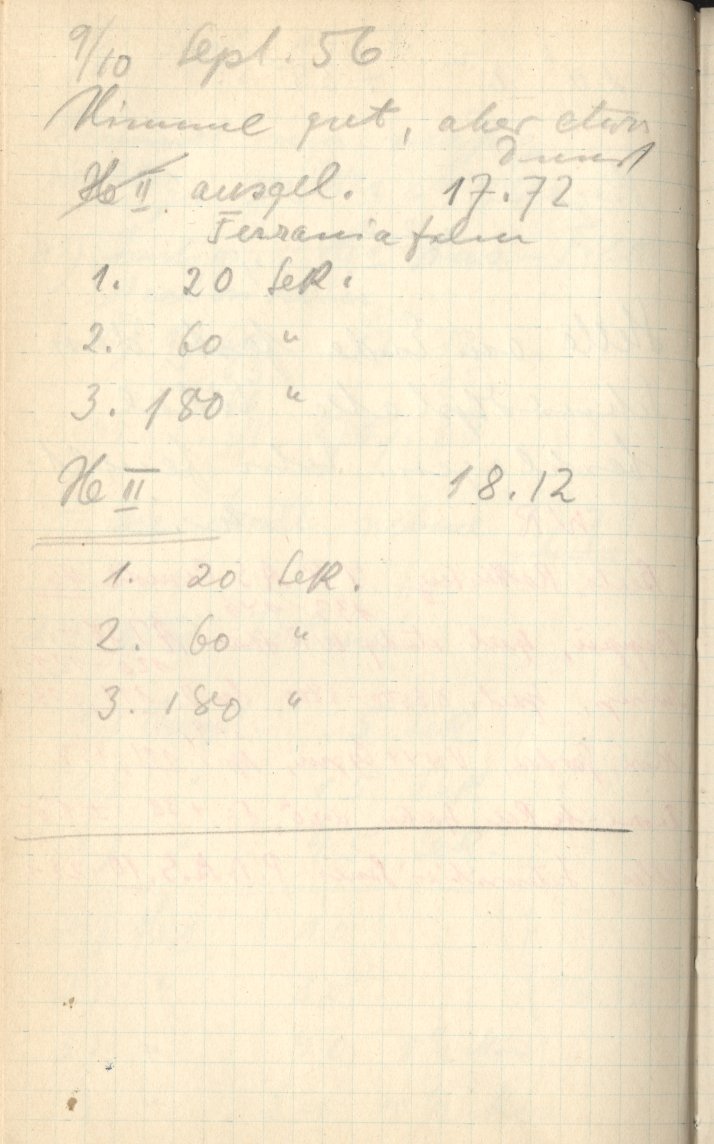 9/10 Sept. 56
Himmel gut, aber etwas
Dunst
He II ausgel. 17.72
Ferrania film
1. 20 Sek.
2. 60 "
3. 180 "
He II 18.12
1. 20 Sek.
2. 60 "
3. 180 "